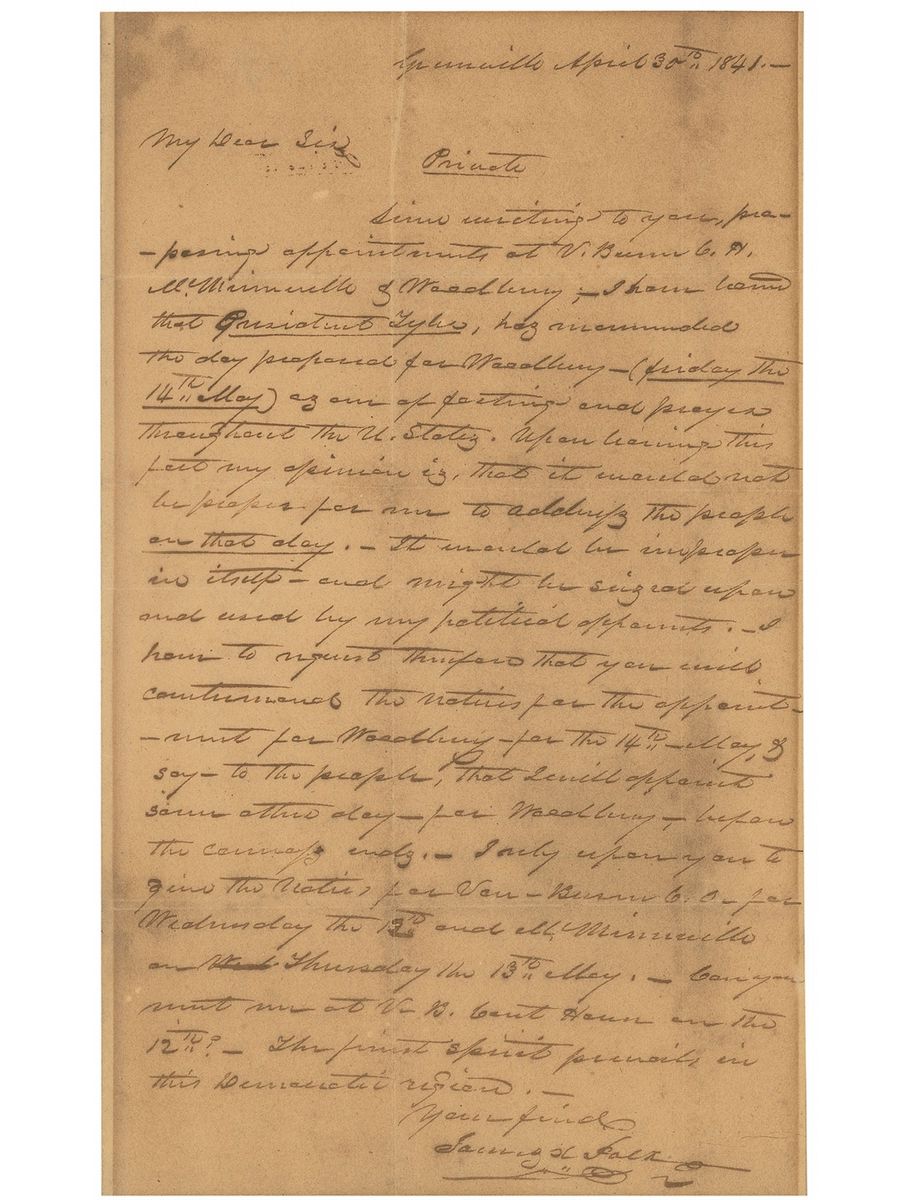 Greenville April 30th 1841.—
My Dear Sir
Private
Since writing to you, pro-
-posing appointments at V. Buren C. H.
McMinnville & Woodbury,— I have learned
that President Tyler, has recommended
the day proposed for Woodbury — (friday the
14th May) as one of fasting and prayer
throughout the U. States. Upon learning this
fact my opinion is, that it would not
be proper for me to address the people
on that day. — It would be improper
in itself — and might be seized upon
and used by my political opponents. — I
have to request therefore that you will
countermand the notices for the appoint-
-ment for Woodbury — for the 14th — May, &
say — to the people, that I will appoint
some other day — for Woodbury —, before
the canvass ends. — I rely upon you to
give the notices for Van-Buren C. H. for
Wednesday the 12th and McMinnville
on Wed Thursday the 13th May. — Can you
meet me at V. B. Court House on the
12th? — The finest spirit prevails in
this Democratic region. —
Your friend
James K. Polk